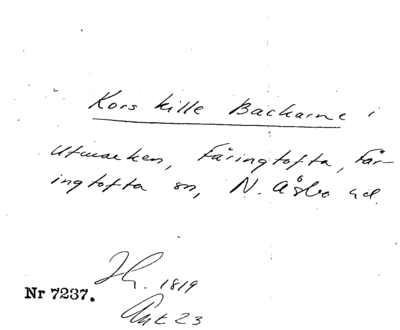 Kors kille Backarne i
utmarken, Färingtofta, Fär-
ingtofta sn, N. Åsbo hd.
1819
Nr 7237.
Akt 23